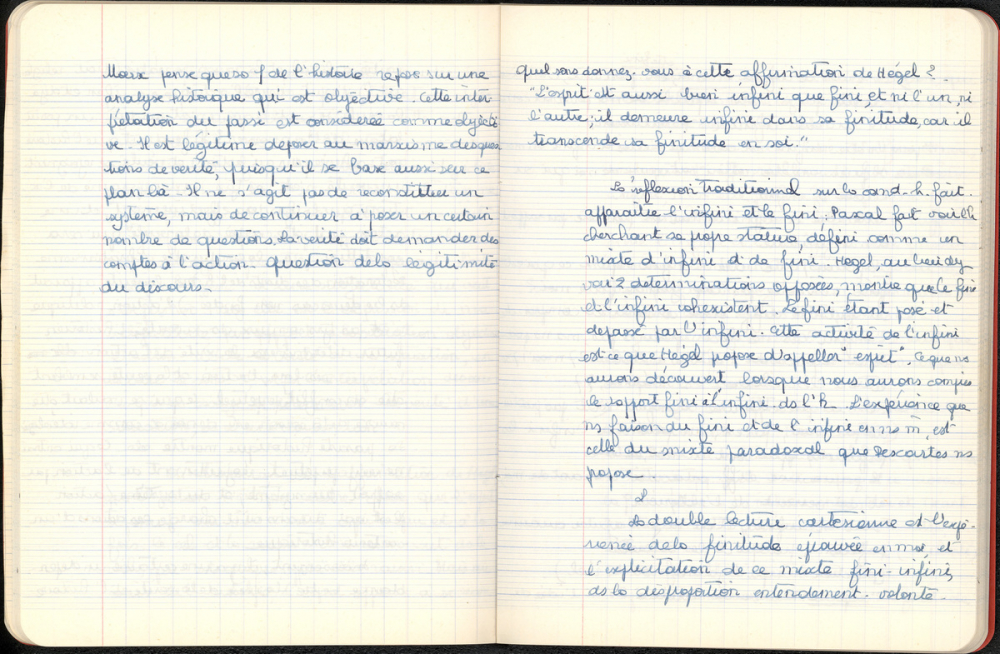 Marx pense que so f de l'histoire repose sur une
analyse historique qui est objective. Cette inter
prétation du passé est considérée comme objecti
ve. Il est légitime de poser au marxisme des ques
tions de vérité, puisqu'il se base aussi sur ce
plan là. Il ne s'agit pas de reconstituer un
système, mais de continuer à poser un certain
nombre de questions. La vérité doit demander des
comptes à l'action. Question de la légitimité
du discours.
Quel sens donnez-vous à cette affirmation de Hégel ?
"L'esprit est aussi bien infini que fini, et ni l'un, ni
l'autre; il demeure infini dans sa finitude, car il
transcende sa finitude en soi."
La réflexion traditionnel sur la cond. h. fait
apparaître l'infini et le fini. Pascal fait voir l'h
cherchant sa propre statue, défini comme un
mixte d'infini et de fini. Hegel, au lieu d'y
voir 2 déterminations opposées, montre que le fini
et l'infini cohexistent. Le fini étant posé et
dépassé par l'infini. Cette activité de l'infini
est ce que Hegel propose d'appeller "esprit". Ce que ns
aurons découvert lorsque nous aurons compris
le rapport fini à l'infini ds l'h. L'expérience que
ns faison du fini et de l'infini en ns m̂, est
celle du mixte paradoxal que Descartes ns
propose.
I
La double lecture cartésienne est l'expé-
rience de la finitude éprouvée en moi, et
l'explicitation de ce mixte fini-infini,
ds la disproportion entendement-volonté.